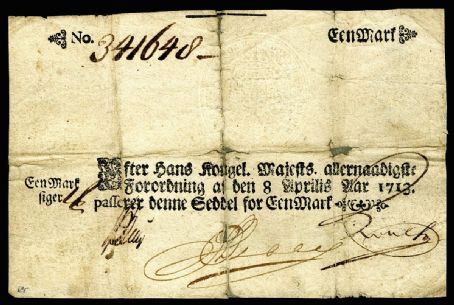 No. 341648
Een Mark
Efter Hans Kongel. Majests. allernaadigste
Een Mark Forordning af den 8 Aprilis Aar 1713.
siger passerer denne Seddel for Een Mark